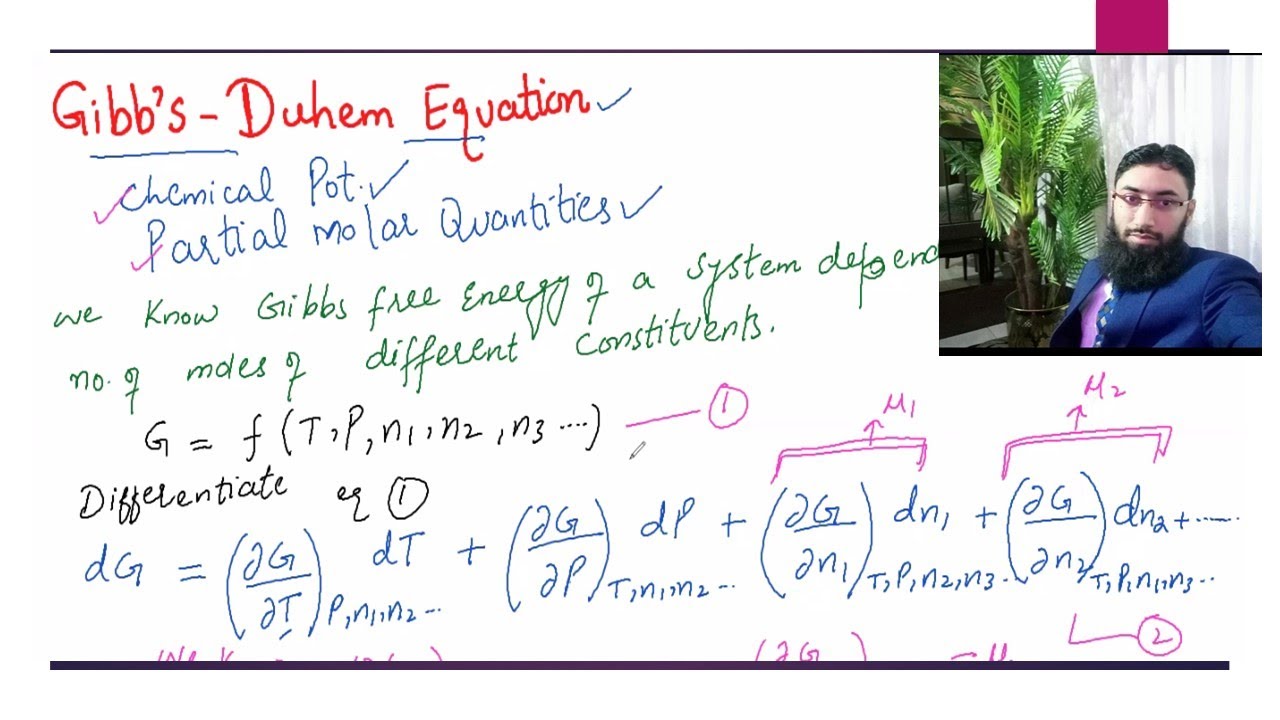 Gibb's - Duhem Equation
Chemical Pot.
Partial molar Quantities
we know Gibbs free Energy of a system depend
no. of moles of different constituents.
G = f (T, P, n1, n2, n3 ....) ① 
Differentiate eq ①
μ1 μ2
dG = (∂G/∂T)P,n1,n2... dT + (∂G/∂P)T,n1,n2... dP + (∂G/∂n1)T,P,n2,n3... dn1 + (∂G/∂n2)T,P,n1,n3... dn2 + ......
②